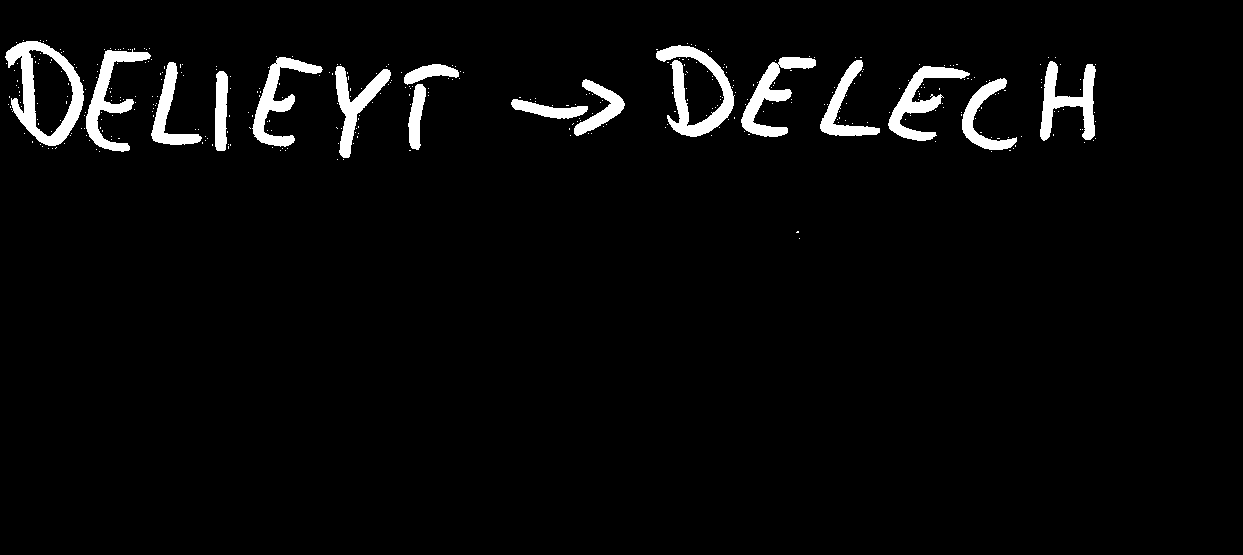 DELIEYT → DELECH